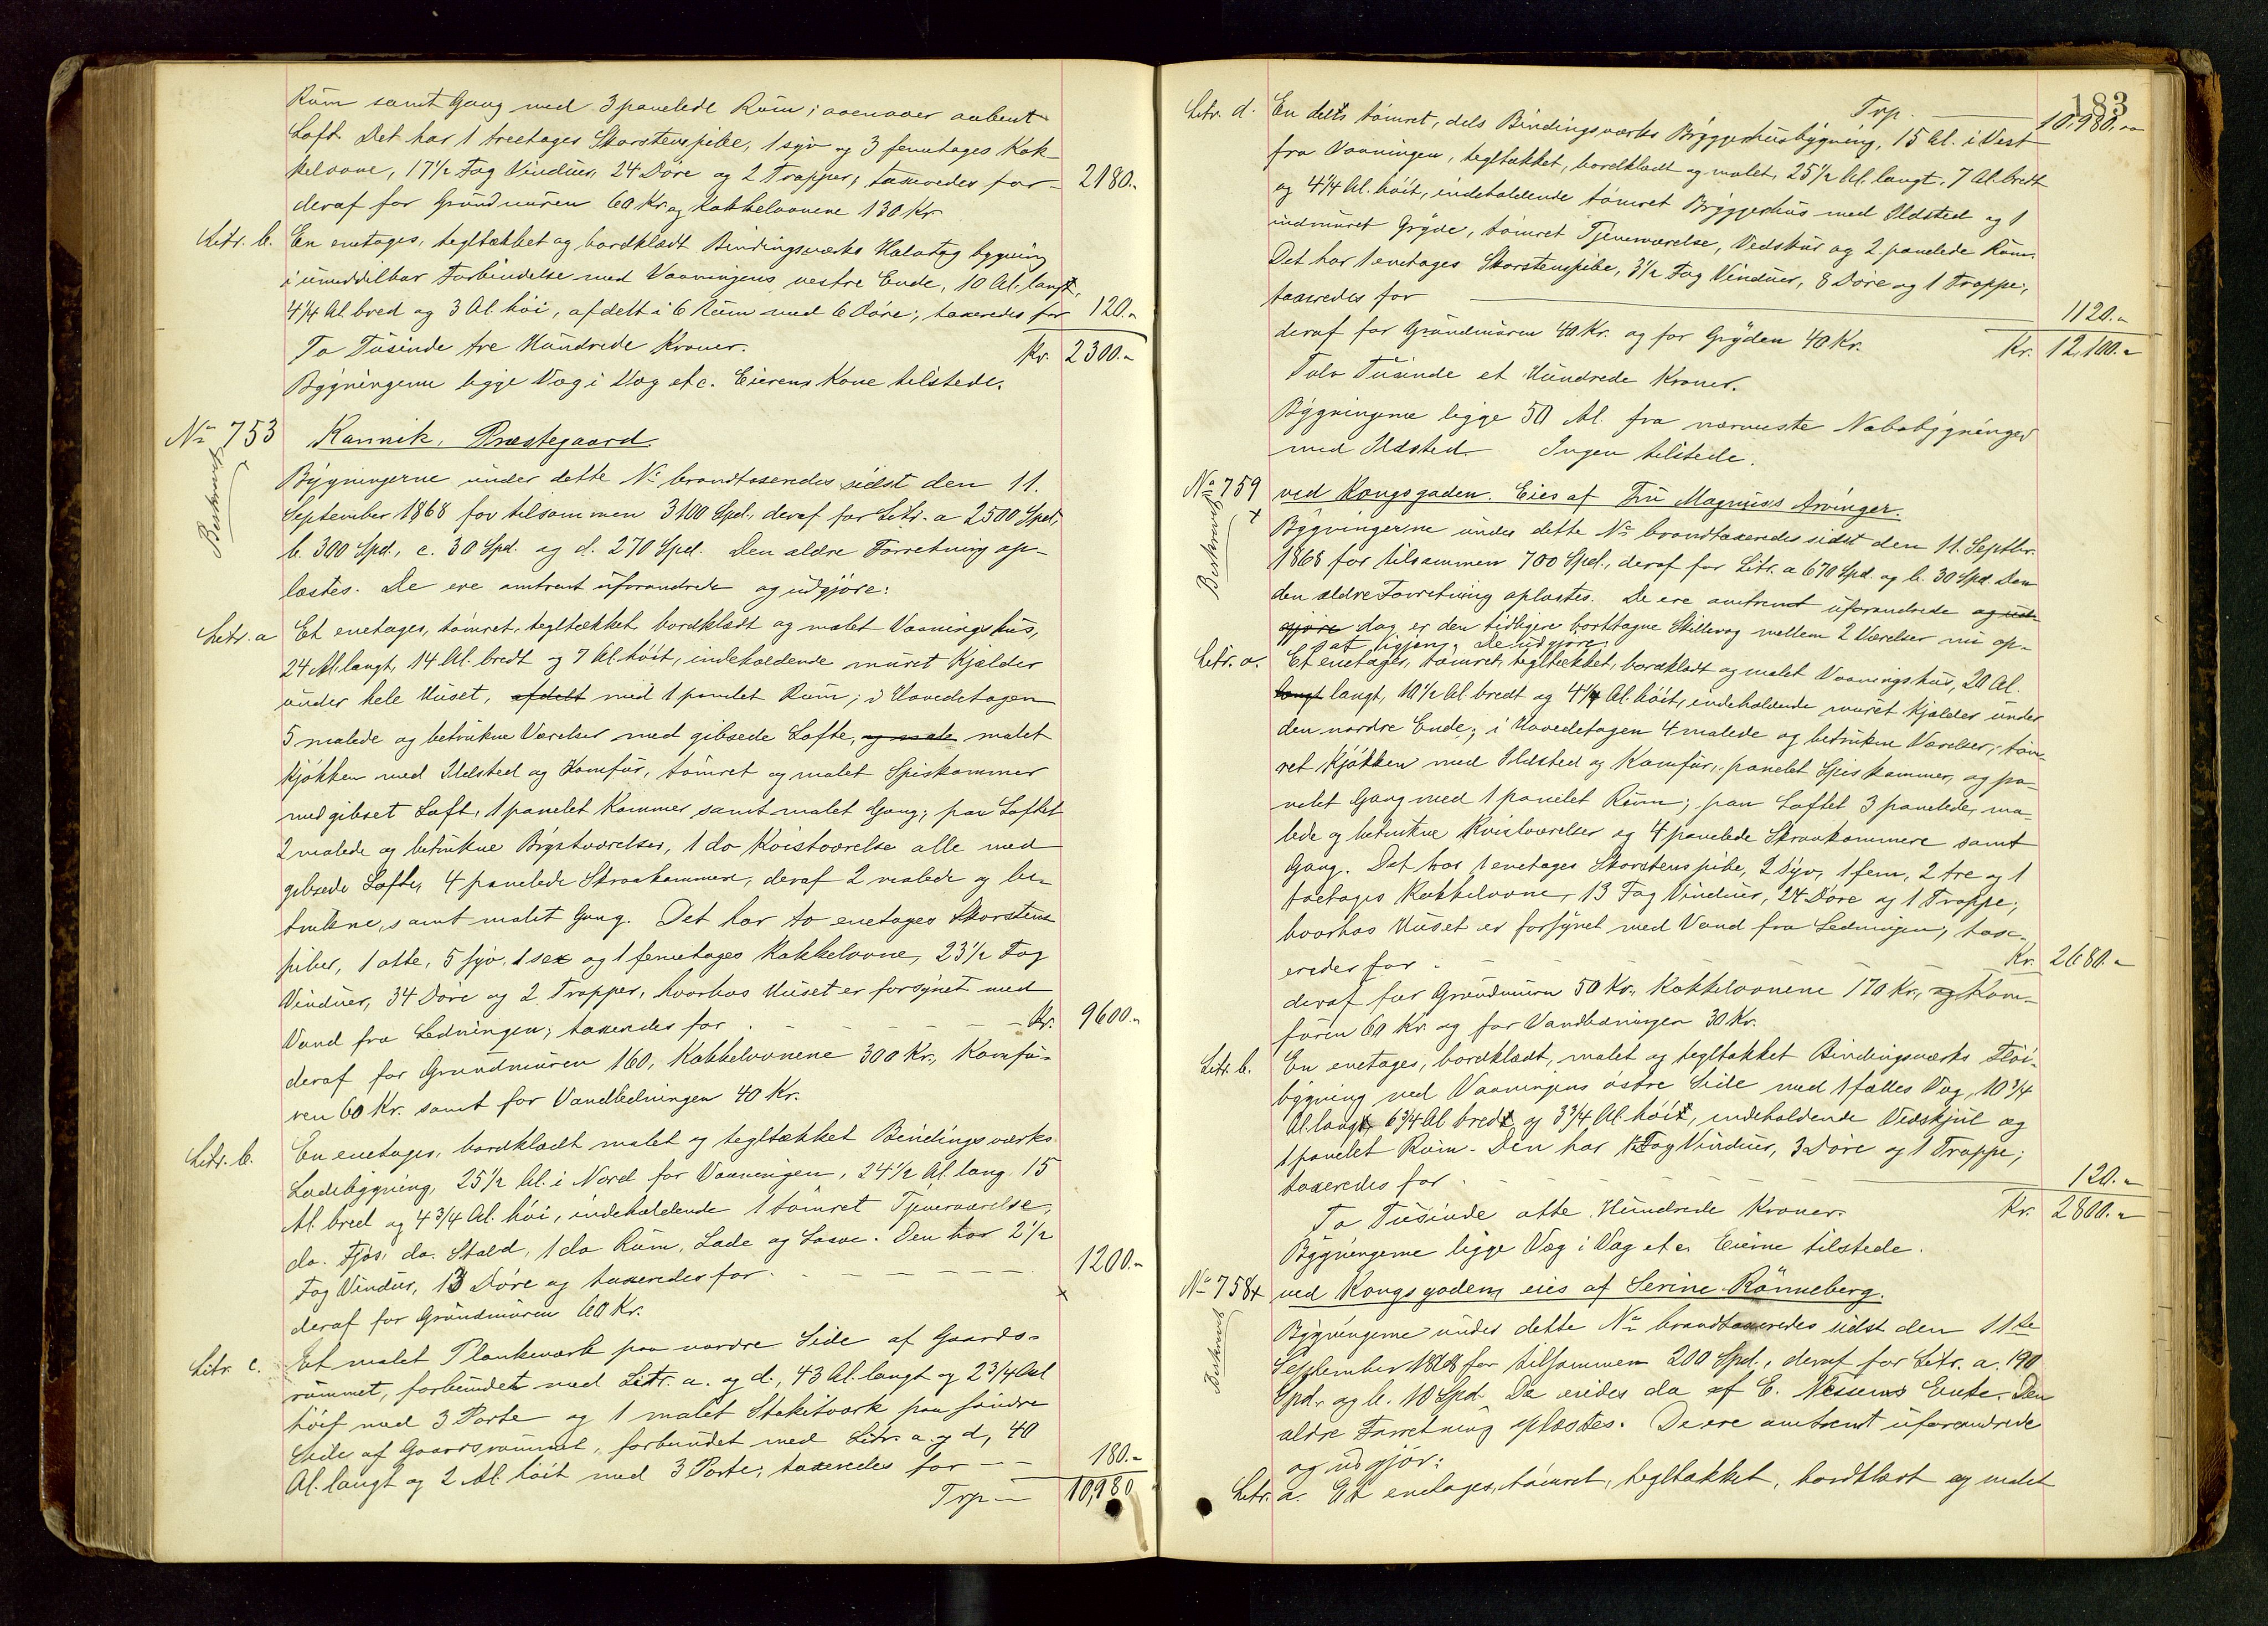 Rum samt Gang med 3 panelede Rum; ovenover aabent
Loft. Det har 1 treetages Skorstenspibe, 1 syv og 3 femetages Kak-
kelovne, 17 1/2 Fag Vinduer, 24 Døre og 2 Trapper; taxeredes for - 2180.-
deraf for Grundmuren 60 Kr. og Kakkelovnene 130 Kr.
Litr. b. En enetages, tegltækket og bordklædt Bindingsværks Halvtag bygning
i umiddelbar Forbindelse med Vaaningens vestre Ende, 10 Al. langt,
4 1/4 Al. bred og 3 Al. høi, afdelt i 6 Rum med 6 Døre; taxeredes for 120.-
To Tusinde tre Hundrede Kroner. Kr. 2300.-
Bygningerne ligge Væg i Væg etc. Eierens Kone tilstede.
No 753 Kannik, Præstegaard.
Beskrevet
Bygningerne under dette No brandtaxeredes sidst den 11.
September 1868 for tilsammen 3100 Spd., deraf for Litr. a 2500 Spd,
b. 300 Spd., c. 30 Spd. og d. 270 Spd. Den ældre Forretning op-
læstes. De ere omtrent uforandrede og udgjøre:
Litr. a Et enetages, tømret, tegltækket, bordklædt og malet Vaaningshus,
24 Al. langt, 14 Al. bredt og 7 Al. høit, indeholdende muret Kjælder
under hele Huset, afdelt med 1 panelet Rum; i Hovedetagen
5 malede og betrukne Værelser med gibsede Lofte, og male malet
Kjøkken med Ildsted og Komfur, tømret og malet Spiskammer
med gibset Loft, 1 panelet Kammer samt malet Gang; paa Loftet
2 malede og betrukne Brystværelser, 1 do Kvistværelse alle med
gibsede Lofte, 4 panelede Skraakammere, deraf 2 malede og be-
trukne, samt malet Gang. Det har to enetages Skorstens-
piber, 1 otte, 5 syv, 1 sex og 1 femetages Kakkelovne, 23 1/2 Fag
Vinduer, 34 Døre og 2 Trapper, hvorhos Huset er forsynet med
Vand fra Ledningen; taxeredes for - - - - - - Kr. 9600.-
deraf for Grundmuren 160, Kakkelovnene 300 Kr., Komfu-
ren 60 Kr. samt for Vandledningen 40 Kr.
Litr. b. En enetages, bordklædt malet og tegltækket Bindingsværks-
Ladebygning, 25 1/2 Al. i Nord for Vaaningen, 24 1/2 Al. lang, 15
Al. bred og 4 3/4 Al. høi, indeholdende 1 tømret Tjenerværelse,
do. Fjøs, do. Stald, 1 do Rum, Lade og Loove. Den har 2 1/2
Fag Vinduer, 13 Døre og taxeredes for - - - - - - 1200.-
deraf for Grundmuren 60 Kr. x
Litr. c. Et malet Plankeværk paa nordre Side af Gaards-
rummet, forbundet med Litr. a. og d., 43 Al. langt og 2 3/4 Al
høit med 3 Porte og 1 malet Stakitværk paa søndre
Side af Gaardsrummet, forbundet med Litr. a. og d, 40
Al. langt og 2 Al. høit med 3 Porte; taxeredes for - - 180.-
Trp - 10,980
183
Trp. 10,980.-
Litr. d. En dels tømret, dels Bindingsværks Bryggerhusbygning, 15 Al. i Vest
fra Vaaningen, tegltækket, bordklædt og malet, 25 1/2 Al. langt, 7 Al. bredt
og 4 1/4 Al. høit, indeholdende tømret Bryggerhus med Ildsted og 1
indmuret Gryde, tømret Tjenerværelse, Vedskur og 2 panelede Rum.
Det har 1 enetages Skorstenspibe, 3 1/2 Fag Vinduer, 8 Døre og 1 Trappe;
taxeredes for 1120.-
deraf for Grundmuren 40 Kr. og for Gryden 40 Kr. Kr. 12,100.-
Tolv Tusinde et Hundrede Kroner.
Bygningerne ligge 50 Al. fra nærmeste Nabobygninger
med Ildsted. Ingen tilstede.
No 759 ved Kongsgaden. Eies af Fru Magnus's Arvinger.
Beskrevet
x
Bygningerne under dette No brandtaxeredes sidst den 11. Septbr.
1868 for tilsammen 700 Spd., deraf for Litr. a 670 Spd. og b. 30 Spd. Den
den ældre Forretning oplæstes. De ere omtrent uforandrede og ud-
gjøre dog er den tidligere borttagne Skillevæg mellem 2 Værelser nu op-
sat igjen. De udgjøre:
Litr. a. Et enetages, tømret, tegltækket, bordklædt og malet Vaaningshus, 20 Al.
langt langt, 10 1/2 Al. bredt og 4 1/4 Al. høit, indeholdende muret Kjælder under
den nordre Ende; i Hovedetagen 4 malede og betrukne Værelser, tøm-
ret Kjøkken med Ildsted og Komfur, panelet Spiskammer, og pa-
nelet Gang med 1 panelet Rum; paa Loftet 3 panelede, ma-
lede og betrukne Kvistværelser og 4 panelede Skraakammere samt
Gang. Det har 1 enetages Skorstenspibe, 2 syv, 1 fem, 2 tre og 1
toetages Kakkelovne, 13 Fag Vinduer, 24 Døre og 1 Trappe;
hvorhos Huset er forsynet med Vand fra Ledningen; taxe-
redes for - - - - - - Kr. 2680.-
deraf for Grundmuren 50 Kr., Kakkelovnene 170 Kr., og Kom-
furen 60 Kr. og for Vandledningen 30 Kr.
Litr. b. En enetages, bordklædt, malet og tegltækket Bindingsværks Fløi-
bygning ved Vaaningens østre Side med 1 fælles Væg, 10 3/4
Al. lang, 6 3/4 Al bred og 3 3/4 Al. høi, indeholdende Vedskjul og
1 panelet Rum. Den har 1 Fag Vinduer, 3 Døre og 1 Trappe;
taxeredes for - - - - - - 120.-
To Tusinde otte Hundrede Kroner. Kr. 2800.-
Bygningerne ligge Væg i Væg etc. Eierne tilstede.
No 758 x ved Kongsgaden, eies af Serine Rønneberg.
Beskrevet
Bygningerne under dette No brandtaxeredes sidst den 11te
September 1868 for tilsammen 200 Spd., deraf for Litr. a. 190
Spd. og b. 10 Spd. De eiedes da af E. Enke. Den
ældre Forretning oplæstes. De ere omtrent uforandrede
og udgjør:
Litr. a. Et enetages, tømret, tegltækket, bordklædt og malet